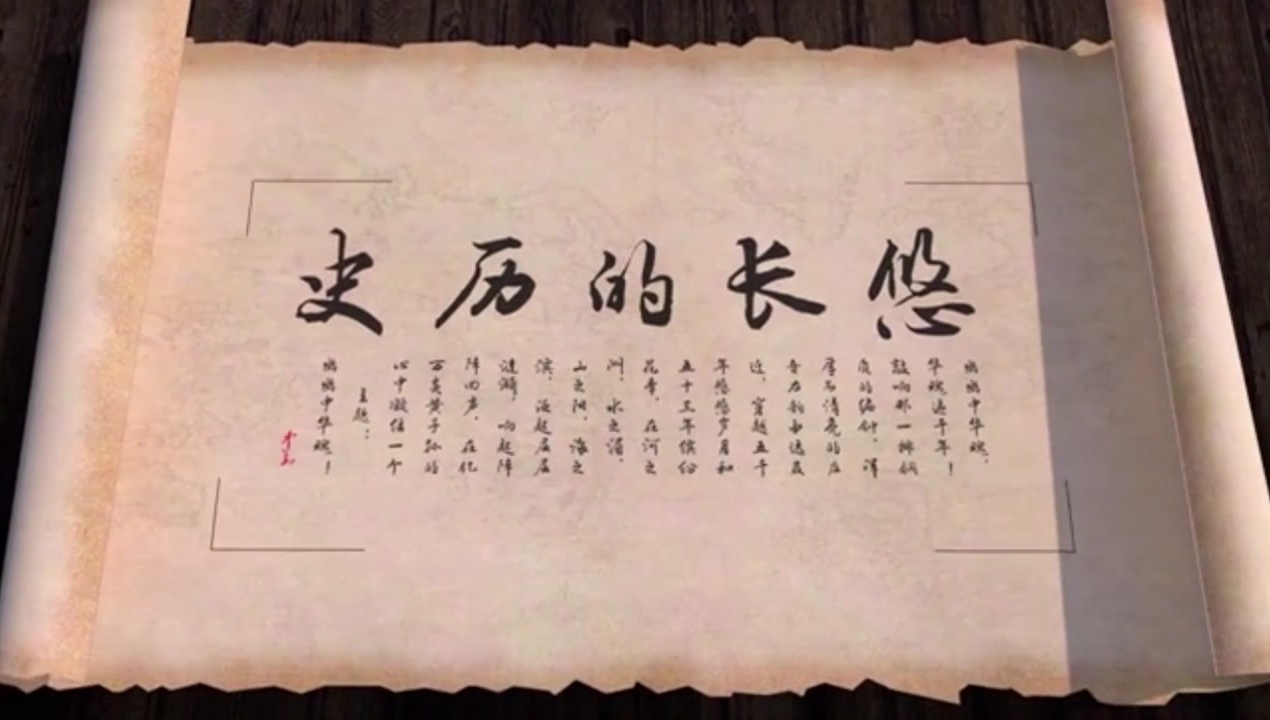 悠长的历史
幽幽中华魂，
华魂千年！
敲响那一排铜
质的编钟，浑
厚而清亮的
音古韵由远及
近，穿越五千
年悠悠岁月和
五十三年缤纷
花季，在河之
洲，水之湄，
山之阳，海之
滨，泛起层层
涟漪，响起阵
阵回声，在亿
万炎黄子孙的
心中凝结一个
主题：
幽幽中华魂！